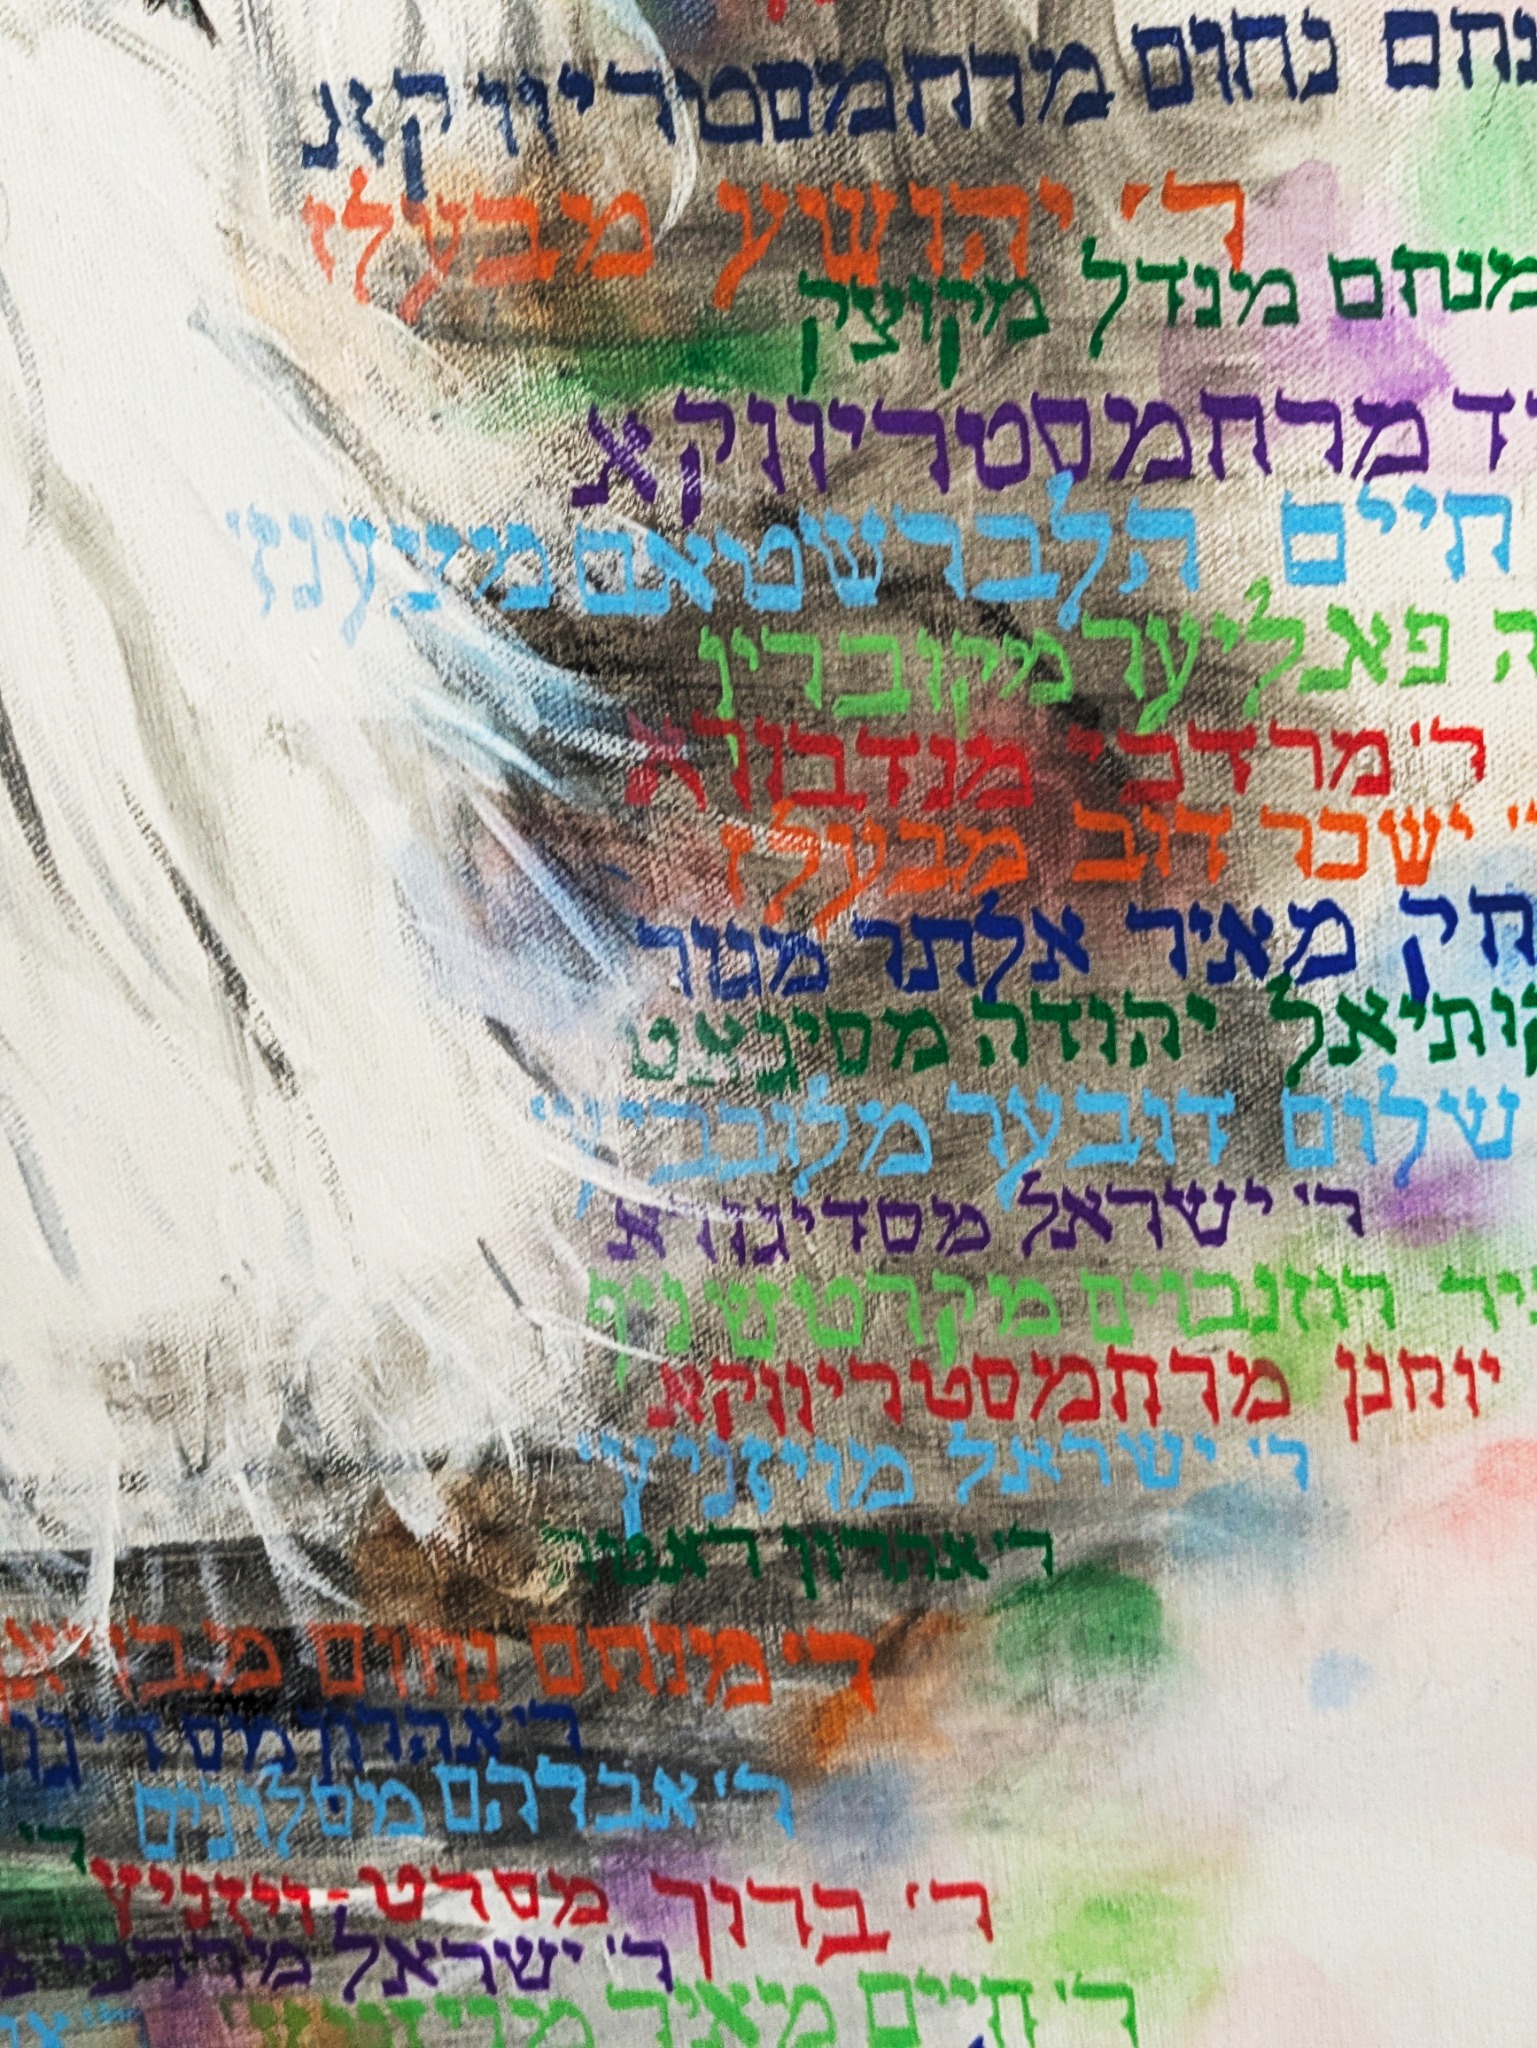 נחום מרחמסטריווקא
ר' יהושע מבעלז
מנחם מנדל מקוצק
מרחמסטריווקא
חיים הלברשטאם מצענז
פאליער מקוברין
ר' מרדכי מנדבורא
ישכר דוב מבעלז
מאיר אלתר מגור
יהודה מסיגאט
שלום דובער מלובביץ
ר' ישראל מסדיגורא
רוזנבוים מקרטשניף
יוחנן מרחמסטריווקא
ר' ישראל מויזניץ
ר' אהרון ראטה
ר' מנחם נחום
ר' אהרון
ר' אברהם מסלונים
ר'
ר' ברוך מסרט-ויזניץ
ר' ישראל מרדכי
ר' חיים מאיר מויזניץ